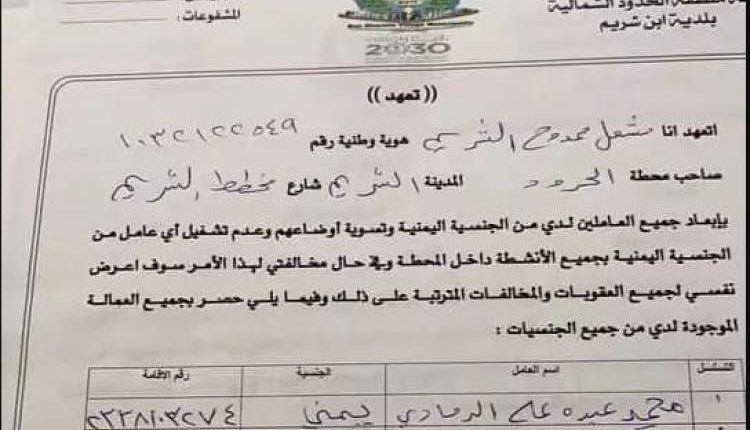 منطقة الحدود الشمالية
بلدية ابن شريم
المشفوعات :
2030
(( تعهد ))
اتعهد انا مشعل ممدوح الشريم هوية وطنية رقم ١٠٣٢١٢٢٥٤٩
صاحب محطة الحدود المدينة الشريم شارع مخطط الشريم
بإبعاد جميع العاملين لدي من الجنسية اليمنية وتسوية أوضاعهم وعدم تشغيل أي عامل من
الجنسية اليمنية بجميع الأنشطة داخل المحطة وفي حال مخالفتي لهذا الأمر سوف اعرض
نفسي لجميع العقوبات والمخالفات المترتبة على ذلك وفيما يلي حصر بجميع العمالة
الموجودة لدي من جميع الجنسيات :
التسلسل اسم العامل الجنسية رقم الأقامة
١ محمد عبده علي الرمادي يمني ٢٣٣٨١٠٣٢٧٤